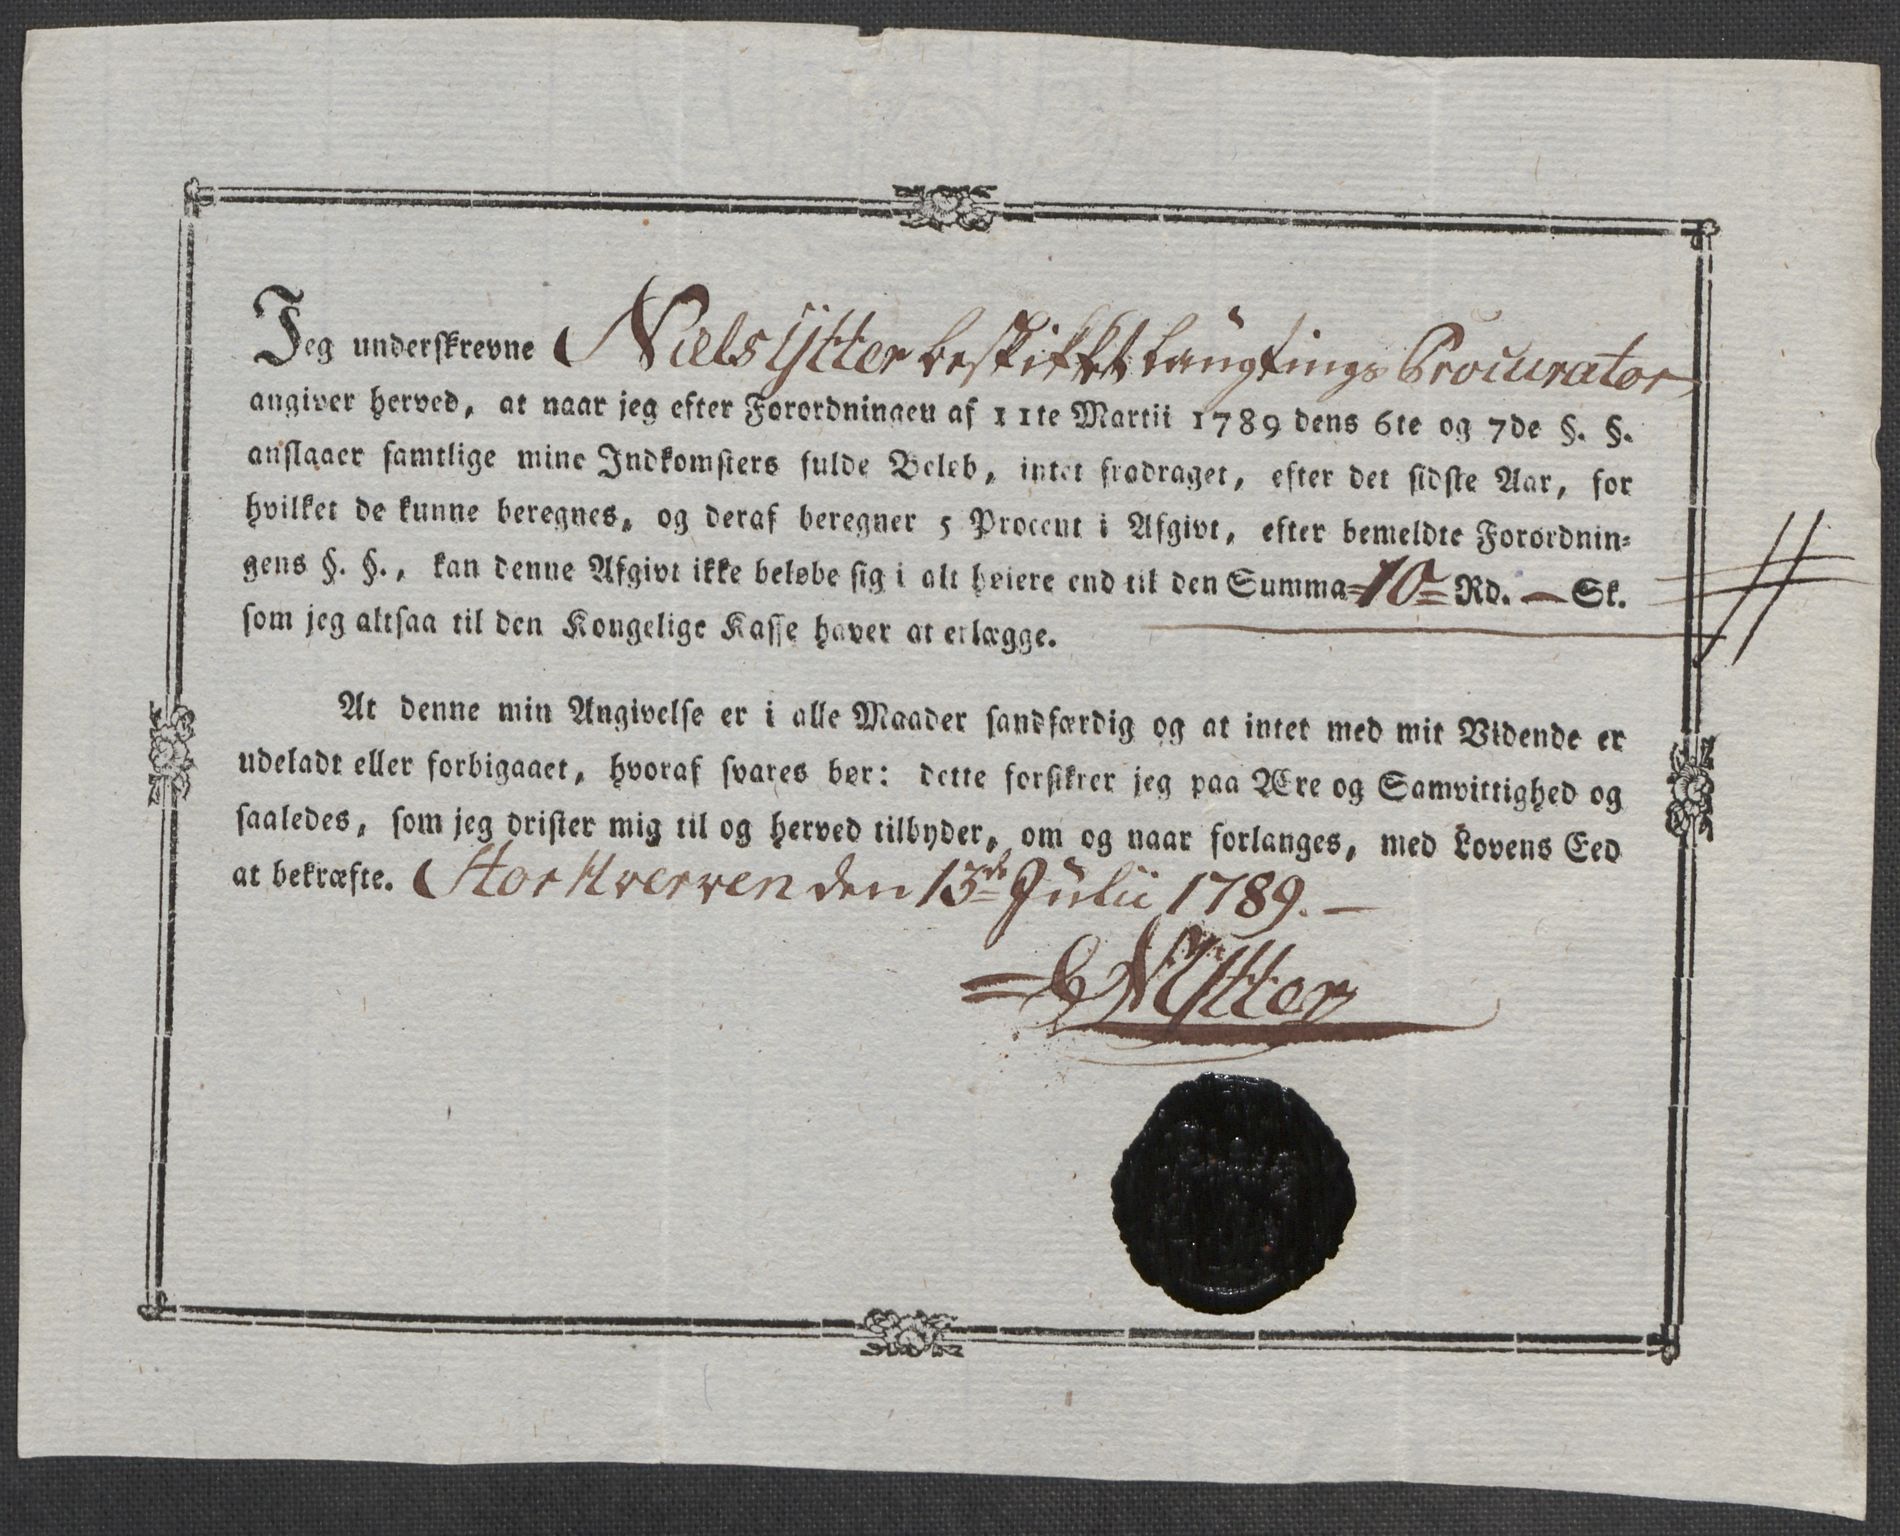 Jeg underskrevne Niels Ytter beskikket Laugtings Procurator
angiver herved, at naar jeg efter Forordningen af 11te Martii 1789 dens 6te og 7de §. §.
anslaaer samtlige mine Indkomsters fulde Beløb, intet fradraget, efter det sidste Aar, for
hvilket de kunne beregnes, og deraf beregner 5 Procent i Afgivt, efter bemeldte Forordnin-
gens §. §., kan denne Afgivt ikke beløbe sig i alt høiere end til den Summa 10 Rd. — Sk.
som jeg altsaa til den Kongelige Kasse haver at erlægge.
At denne min Angivelse er i alle Maader sandfærdig og at intet med mit Vidende er
udeladt eller forbigaaet, hvoraf svares bør: dette forsikrer jeg paa Ære og Samvittighed og
saaledes, som jeg drister mig til og herved tilbyder, om og naar forlanges, med Lovens Eed
at bekræfte. Storhverven den 13de Julii 1789. —
NYtter